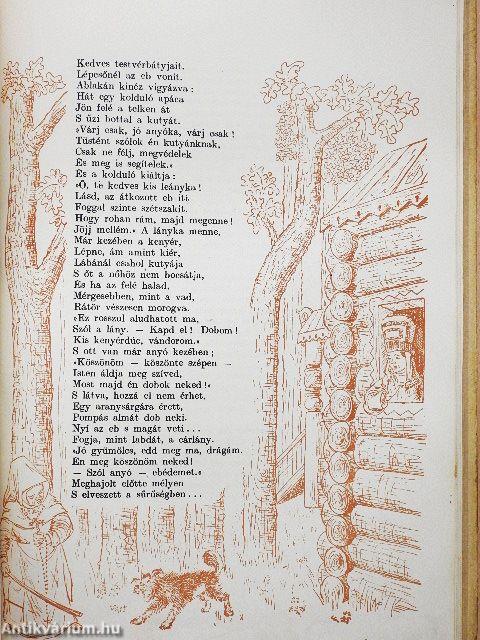 Kedves testvérbátyjait.
Lépcsőnél az eb vonít.
Ablakán kinéz vigyázva:
Hát egy kolduló apáca
Jön felé a telken át
S űzi bottal a kutyát.
»Várj csak, jó anyóka, várj csak!
Tüstént szólok én kutyánknak,
Csak ne félj, megvédelek
És meg is segítelek.«
És a kolduló kiáltja:
»Ó, te kedves kis leányka!
Lásd, az átkozott eb itt
Foggal szinte szétszakít.
Hogy rohan rám, majd megenne!
Jöjj mellém.« A lányka menne,
Már kezében a kenyér,
Lépne, ám amint kiér,
Lábánál csahol kutyája
S őt a nőhöz nem bocsátja,
És ha az felé halad,
Mérgesebben, mint a vad,
Rátör vészesen morogva.
»Ez rosszul aludhatott ma,
Szól a lány. — Kapd el! Dobom!
Kis kenyérdúc, vándorom.«
S ott van már anyó kezében;
»Köszönöm — köszönte szépen —
Isten áldja meg szíved,
Most majd én dobok neked!«
S látva, hozzá el nem érhet,
Egy aranysárgára érett,
Pompás almát dob neki.
Nyí az eb s magát veti...
Fogja, mint labdát, a cárlány.
»Jó gyümölcs, edd meg ma, drágám.
Én meg köszönöm neked!
— Szól anyó — ebédemet.«
Meghajolt előtte mélyen
S elveszett a sűrűségben...
Antikvárium.hu